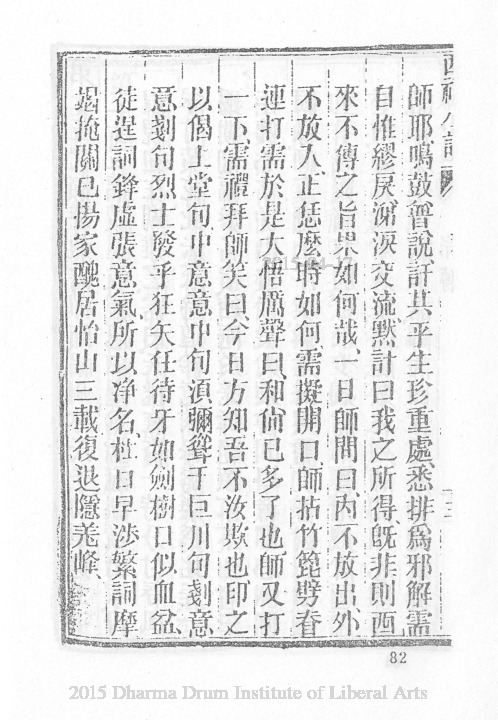 師耶鳴鼓普說訐其平生珍重處悉排爲邪解需
自惟繆戾涕淚交流默計曰我之所得旣非則西
來不傳之旨果如何哉一日師問曰內不放出外
不放入正恁麼時如何需擬開口師拈竹篦劈脊
連打需於是大悟厲聲曰和尙已多了也師又打
一下需禮拜師笑曰今日方知吾不汝欺也印之
以偈上堂句中意意中句須彌聳于巨川句剗意
意剗句烈士發乎狂矢任待牙如劍樹口似血盆
徒逞詞鋒虛張意氣所以净名杜口早涉繁詞摩
竭掩關已揚家醜居怡山三載復退隱羌峰
82
2015 Dharma Drum Institute of Liberal Arts